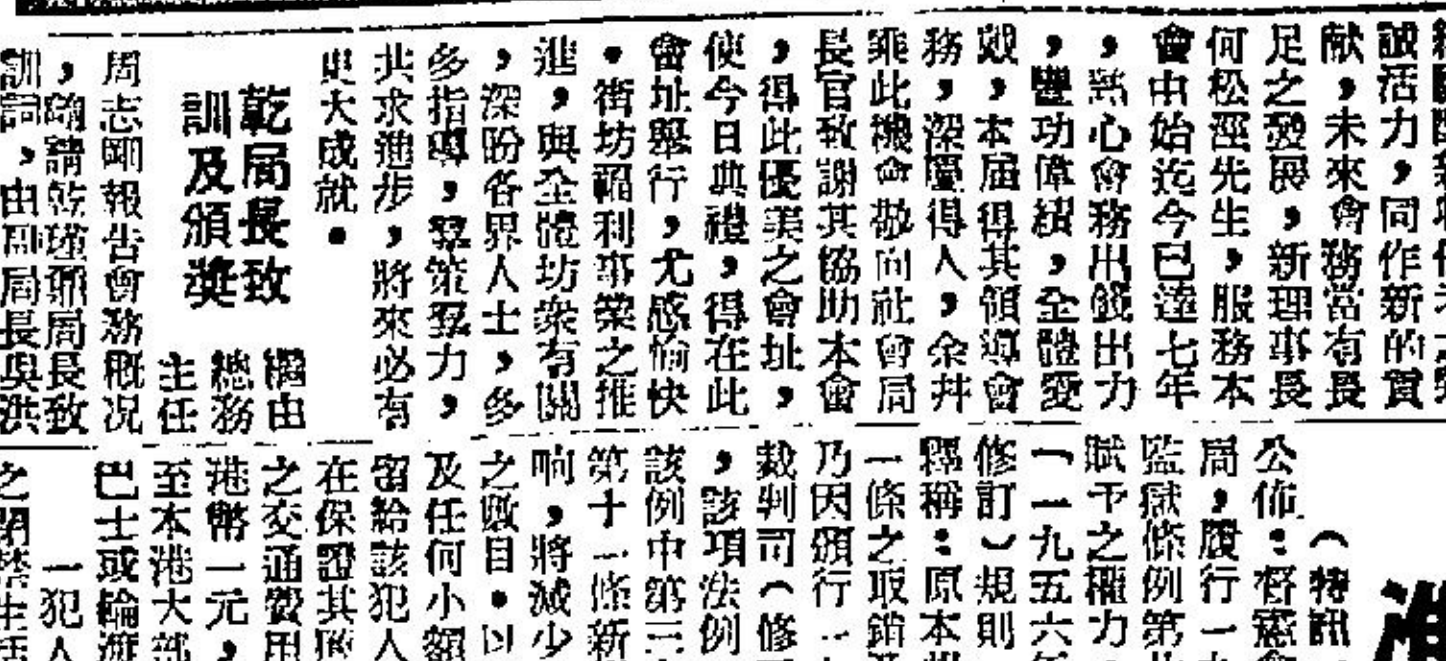 誠活力，同作新的貢
献，未來會務當有長
足之發展，新理事長
何松涇先生，服務本
會由始迄今已達七年
，熱心會務出錢出力
，豐功偉績，全體愛
戴，本届得其領導會
務，深慶得人，余幷
乘此機會敬向社會局
長官致謝其協助本會
，得此優美之會址，
使今日典禮，得在此
會址舉行，尤感愉快
。街坊福利事業之推
進，與全體坊衆有關
，深盼各界人士，多
多指導，羣策羣力，
共求進步，將來必有
更大成就。
乾局長致
訓及頒獎
繼由
總務
主任
周志剛報告會務概况
，請乾局長致
訓詞，由副局長與洪
（特訊
公佈：督憲會
局，履行一九
監獄條例第
賦予之權力，
「一九五六年
修訂）規則
釋稱：原本
一條之取銷
乃因頒行一
裁判司（修
，該項法例
該例中第三
第十一條新
响，將減少
之數目。以
及任何小額
留給該犯人
在保證其
之交通費用
港幣一元，
至本港大部
巴士或輪渡
一犯人
之
准